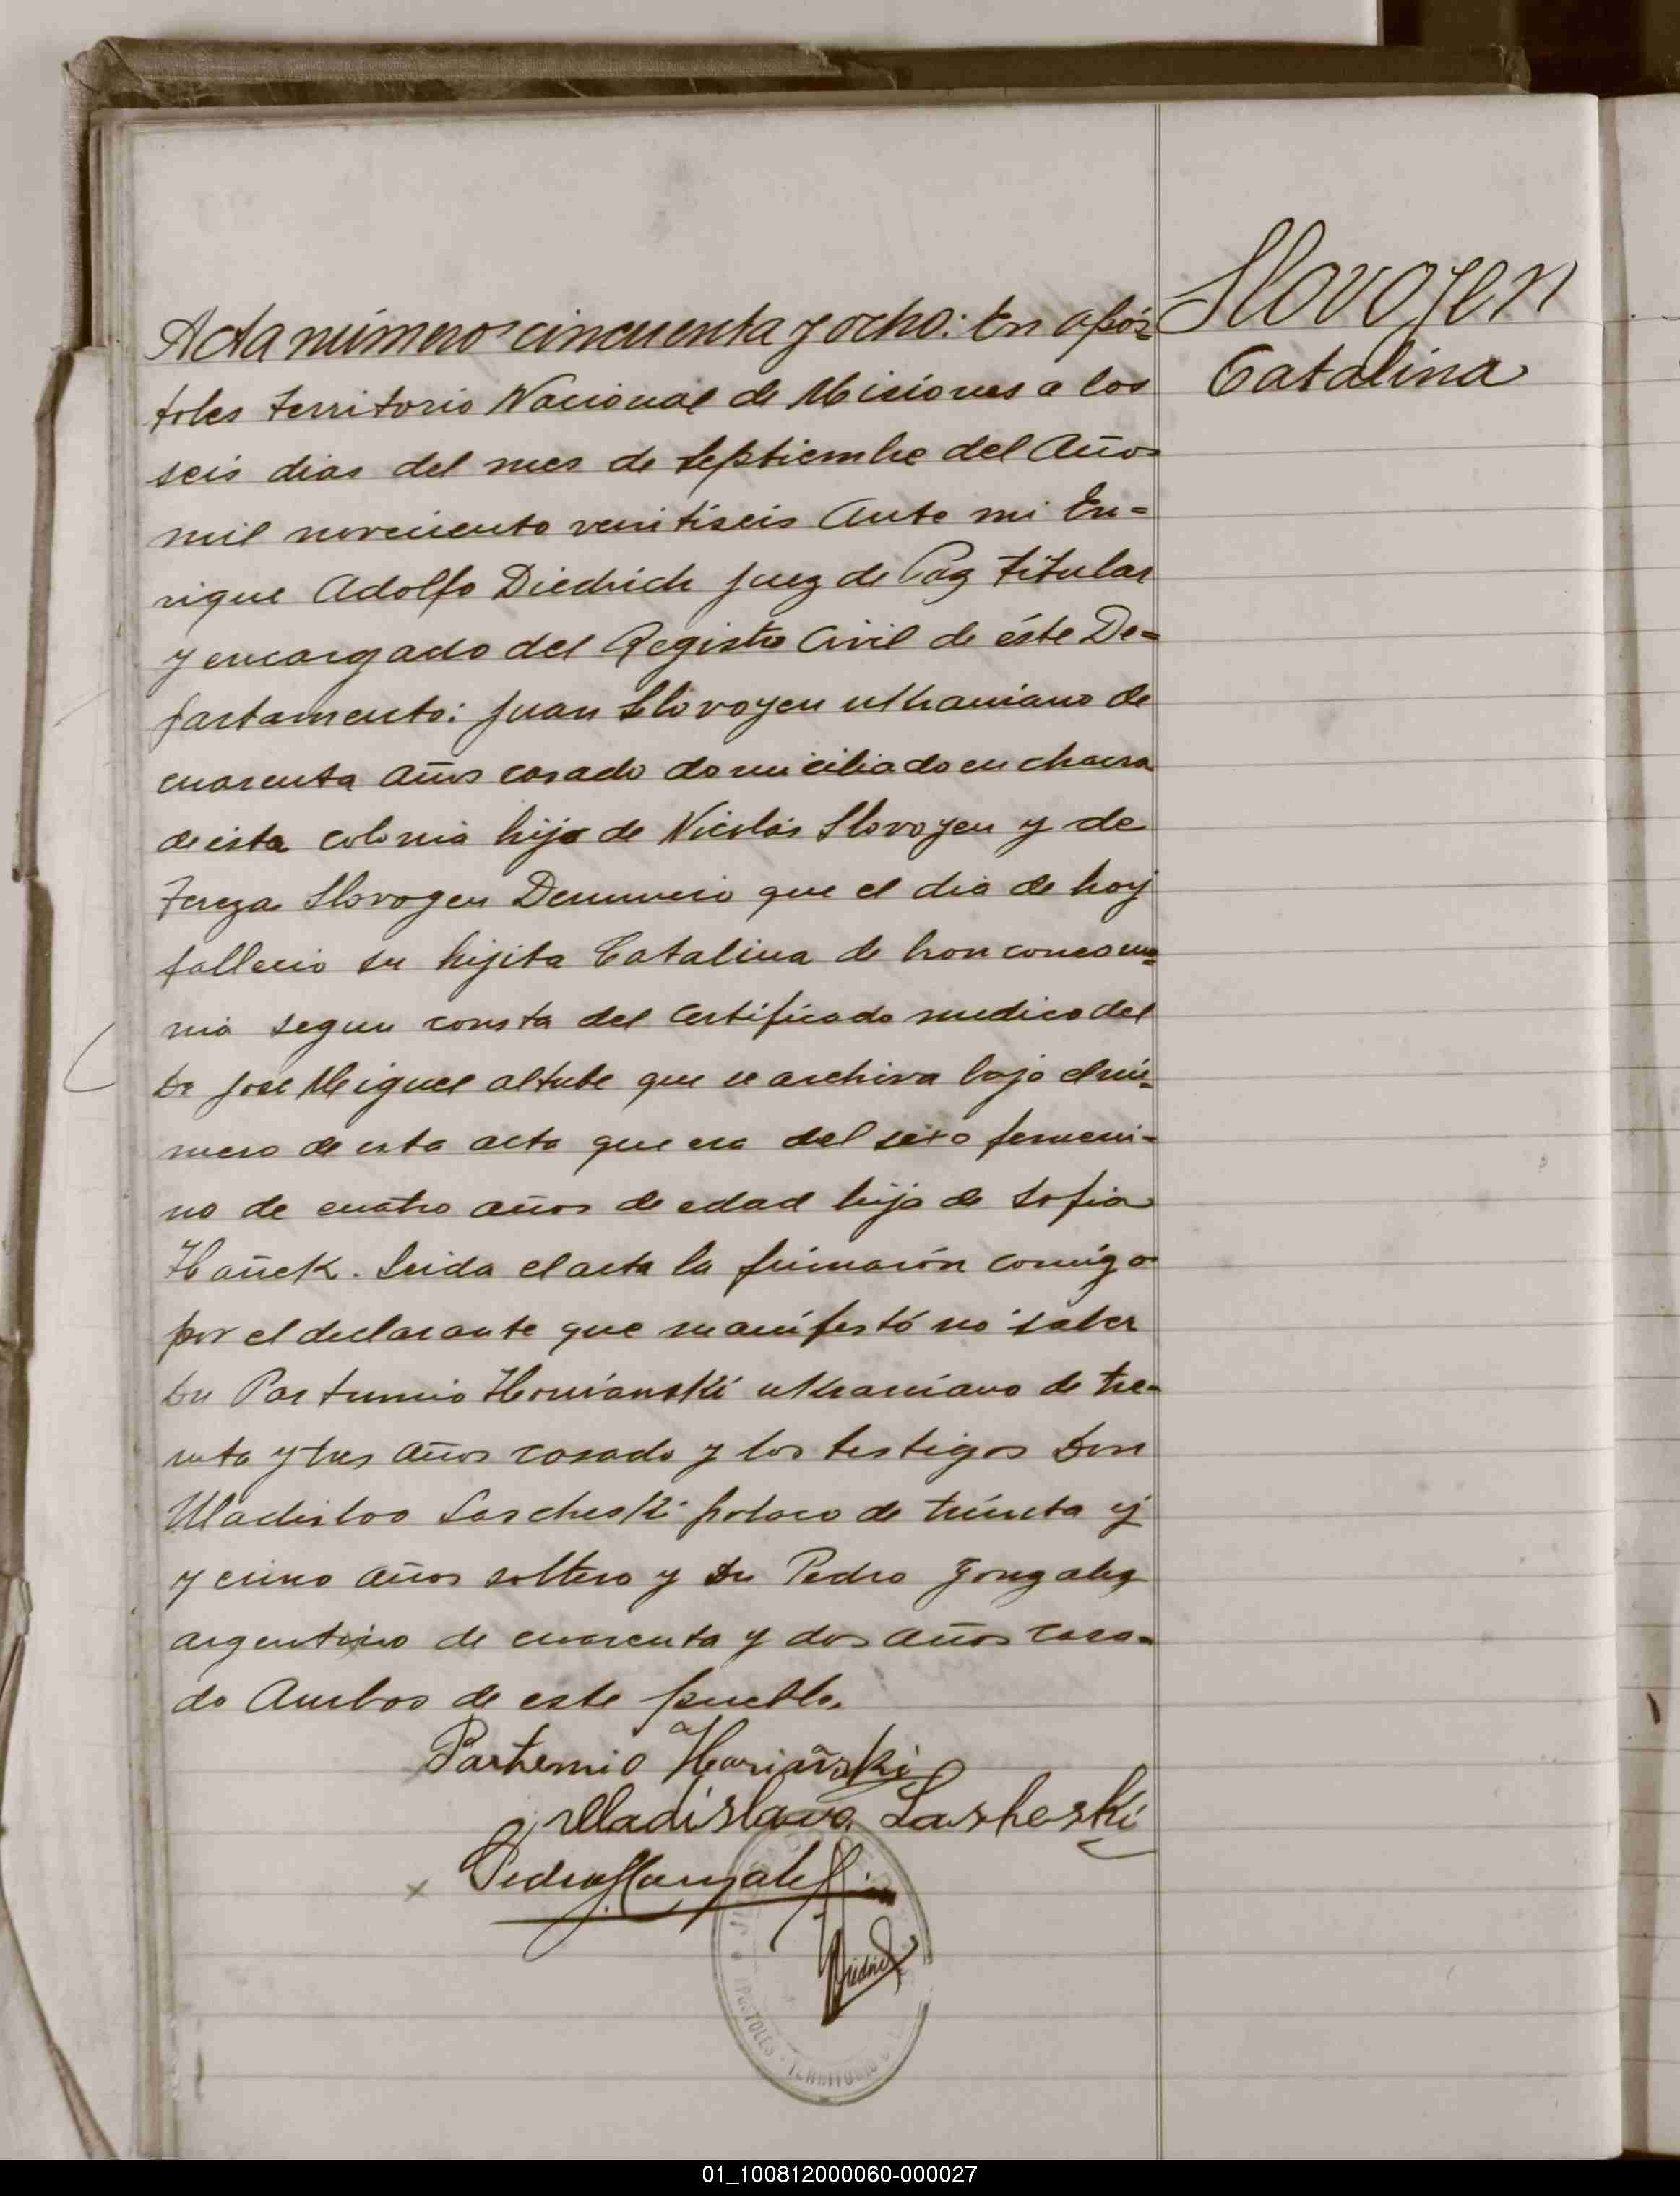 Slovoyen
Catalina
Acta número cincuenta y ocho: En Após-
toles territorio Nacional de Misiones a los
seis dias del mes de septiembre del Año
mil noveciento veintiseis Ante mi En=
rique Adolfo Diedrich Juez de Paz titular
y encargado del Registro Civil de éste De=
partamento: Juan Slovoyen ukraniano de
cuarenta Años casado domiciliado en chacra
de ésta colonia hijo de Nicolás Slovoyen y de
Tereza Slovoyen Denuncio que el dia de hoy
fallecio su hijita Catalina de
segun consta del certificado medico del
Dr José Miguel Altube que se archiva bajo el nú-
mero de esta acta que era del sexo femeni-
no de cuatro años de edad hija de Sofia
Hañek. Leida el acta la firmarón comigo
por el declarante que manifestó no saber
Dn Partemio Horianski ukraniano de tre-
nta y tres Años casado y los testigos Don
Uladislao Lascheski polaco de treinta y
y cinco Años soltero y Dn Pedro Gonzalez
argentino de cuarenta y dos Años casa-
do Ambos de este pueblo.
Partemio Horiañski
Uladislavo Lasheski
x Pedro Gonzalez
Diedrich
APOSTOLES - TERRITORIO
01_100812000060-000027